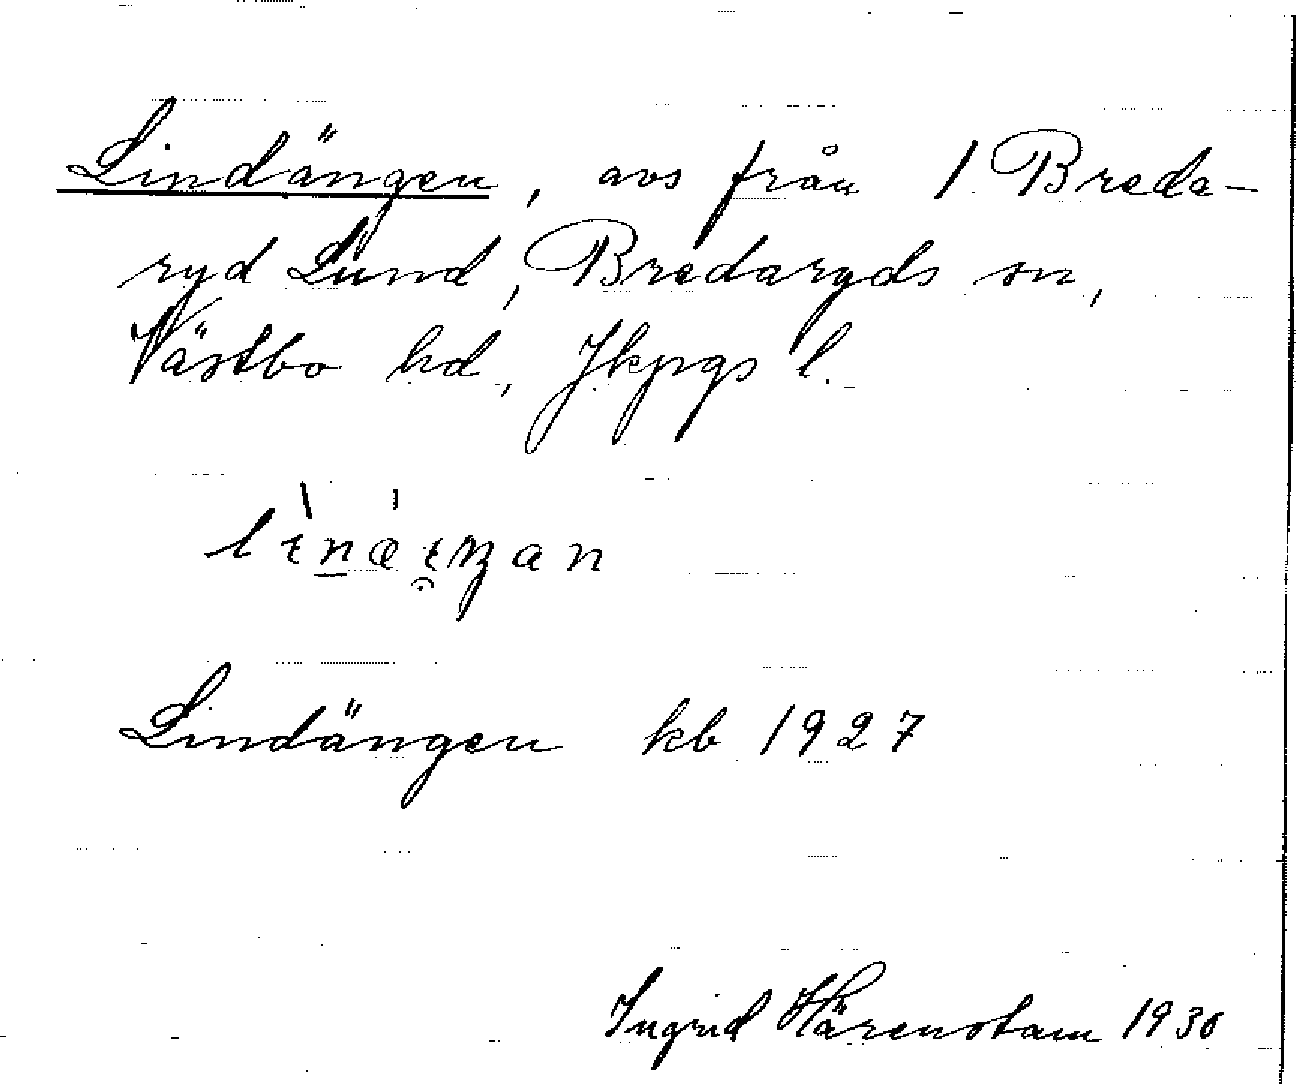 Lindängen, avs från 1 Breda-
ryd Lund, Bredaryds sn,
Västbo hd, Jkpgs l.
Lindängen kb 1927
Ingrid Härenstam 1930